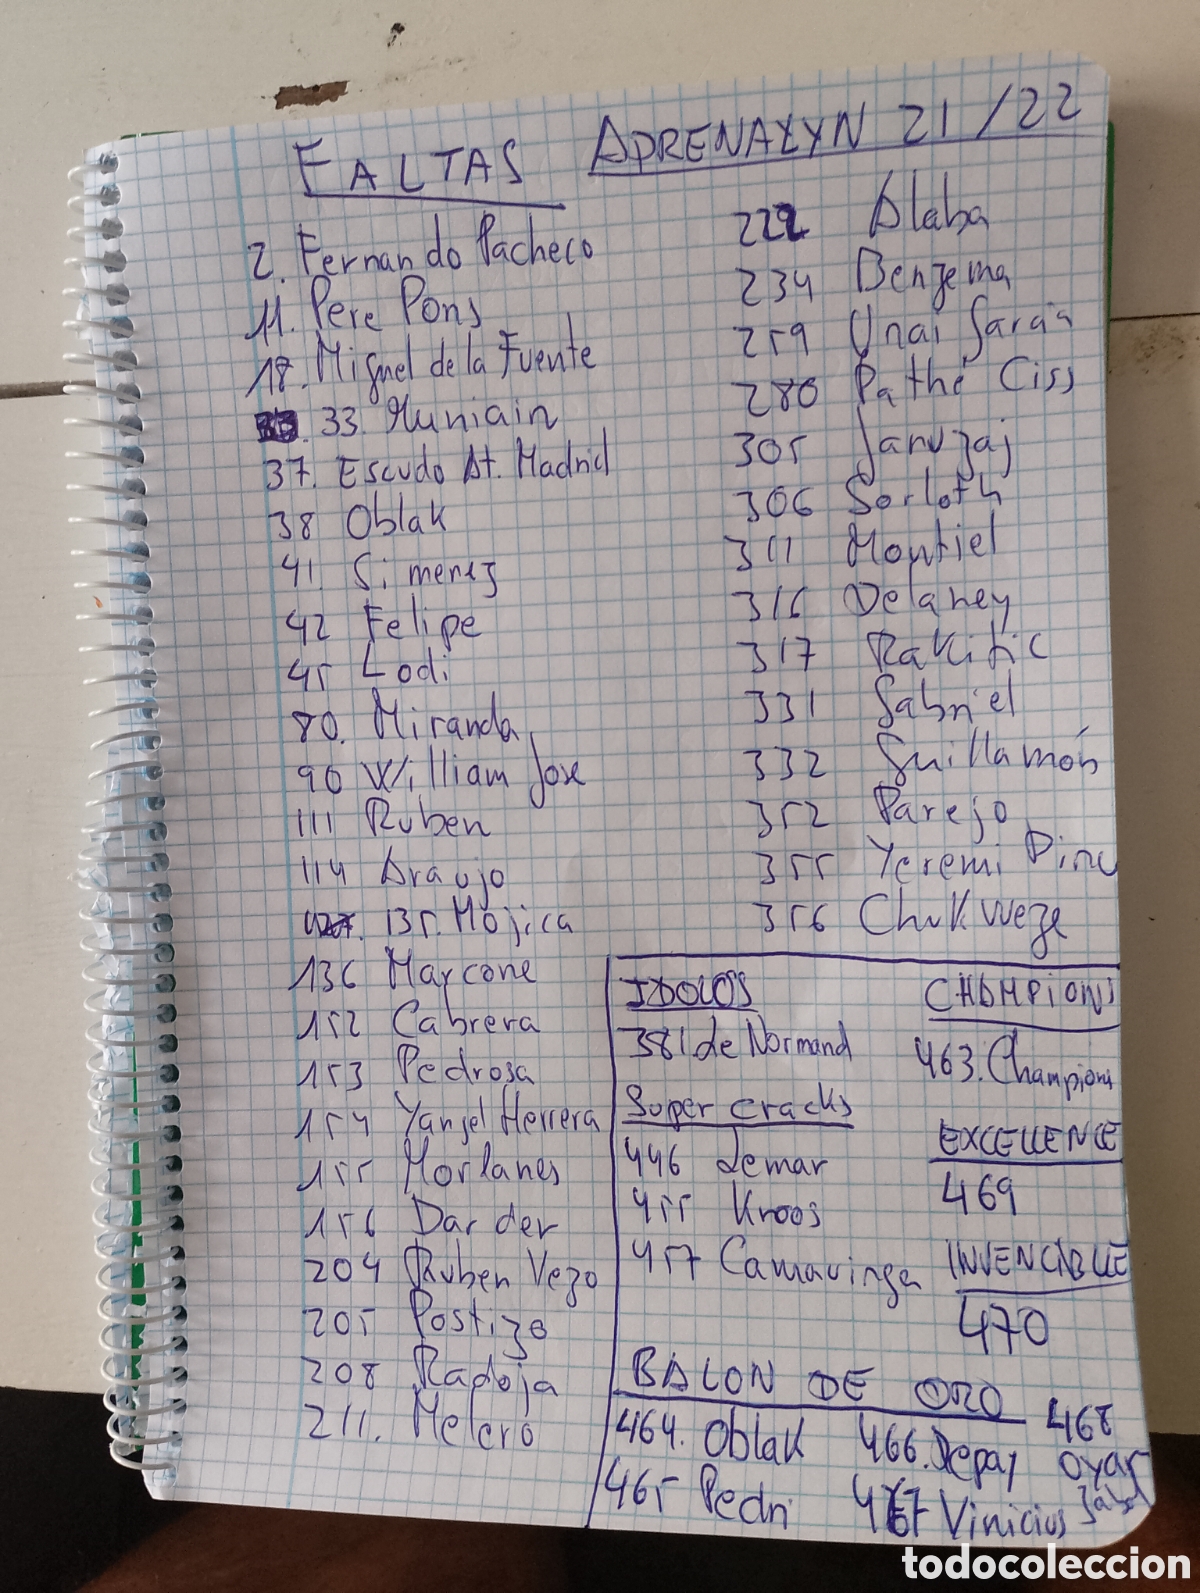 FALTAS ADRENALYN 21/22
2. Fernando Pacheco
11. Pere Pons
18. Miguel de la Fuente
33. Muniain
37. Escudo At. Madrid
38 Oblak
41. Gimenez
42 Felipe
45 Lodi
80. Miranda
90 William Jose
111 Ruben
114 Araujo
135. Mojica
136 Marcone
152 Cabrera
153 Pedrosa
154 Yangel Herrera
155 Morlanes
156 Darder
204 Ruben Vezo
205 Postigo
208 Radoja
211. Melero
222 Alaba
234 Benzema
259 Unai Garcia
280 Pathé Ciss
305 Januzaj
306 Sorloth
311 Montiel
316 Delaney
317 Rakitic
331 Gabriel
332 Guillamón
352 Parejo
355 Yeremi Pino
356 Chukweze
IDOLOS
381 de Normand
Super cracks
446 Lemar
455 Kroos
457 Camavinga
CHAMPIONS
463. Champions
EXCELLENCE
469
INVENCIBLE
470
BALON DE ORO
464. Oblak
465 Pedri
466. Depay
467 Vinicius
468
Oyar
zabal
todocoleccion